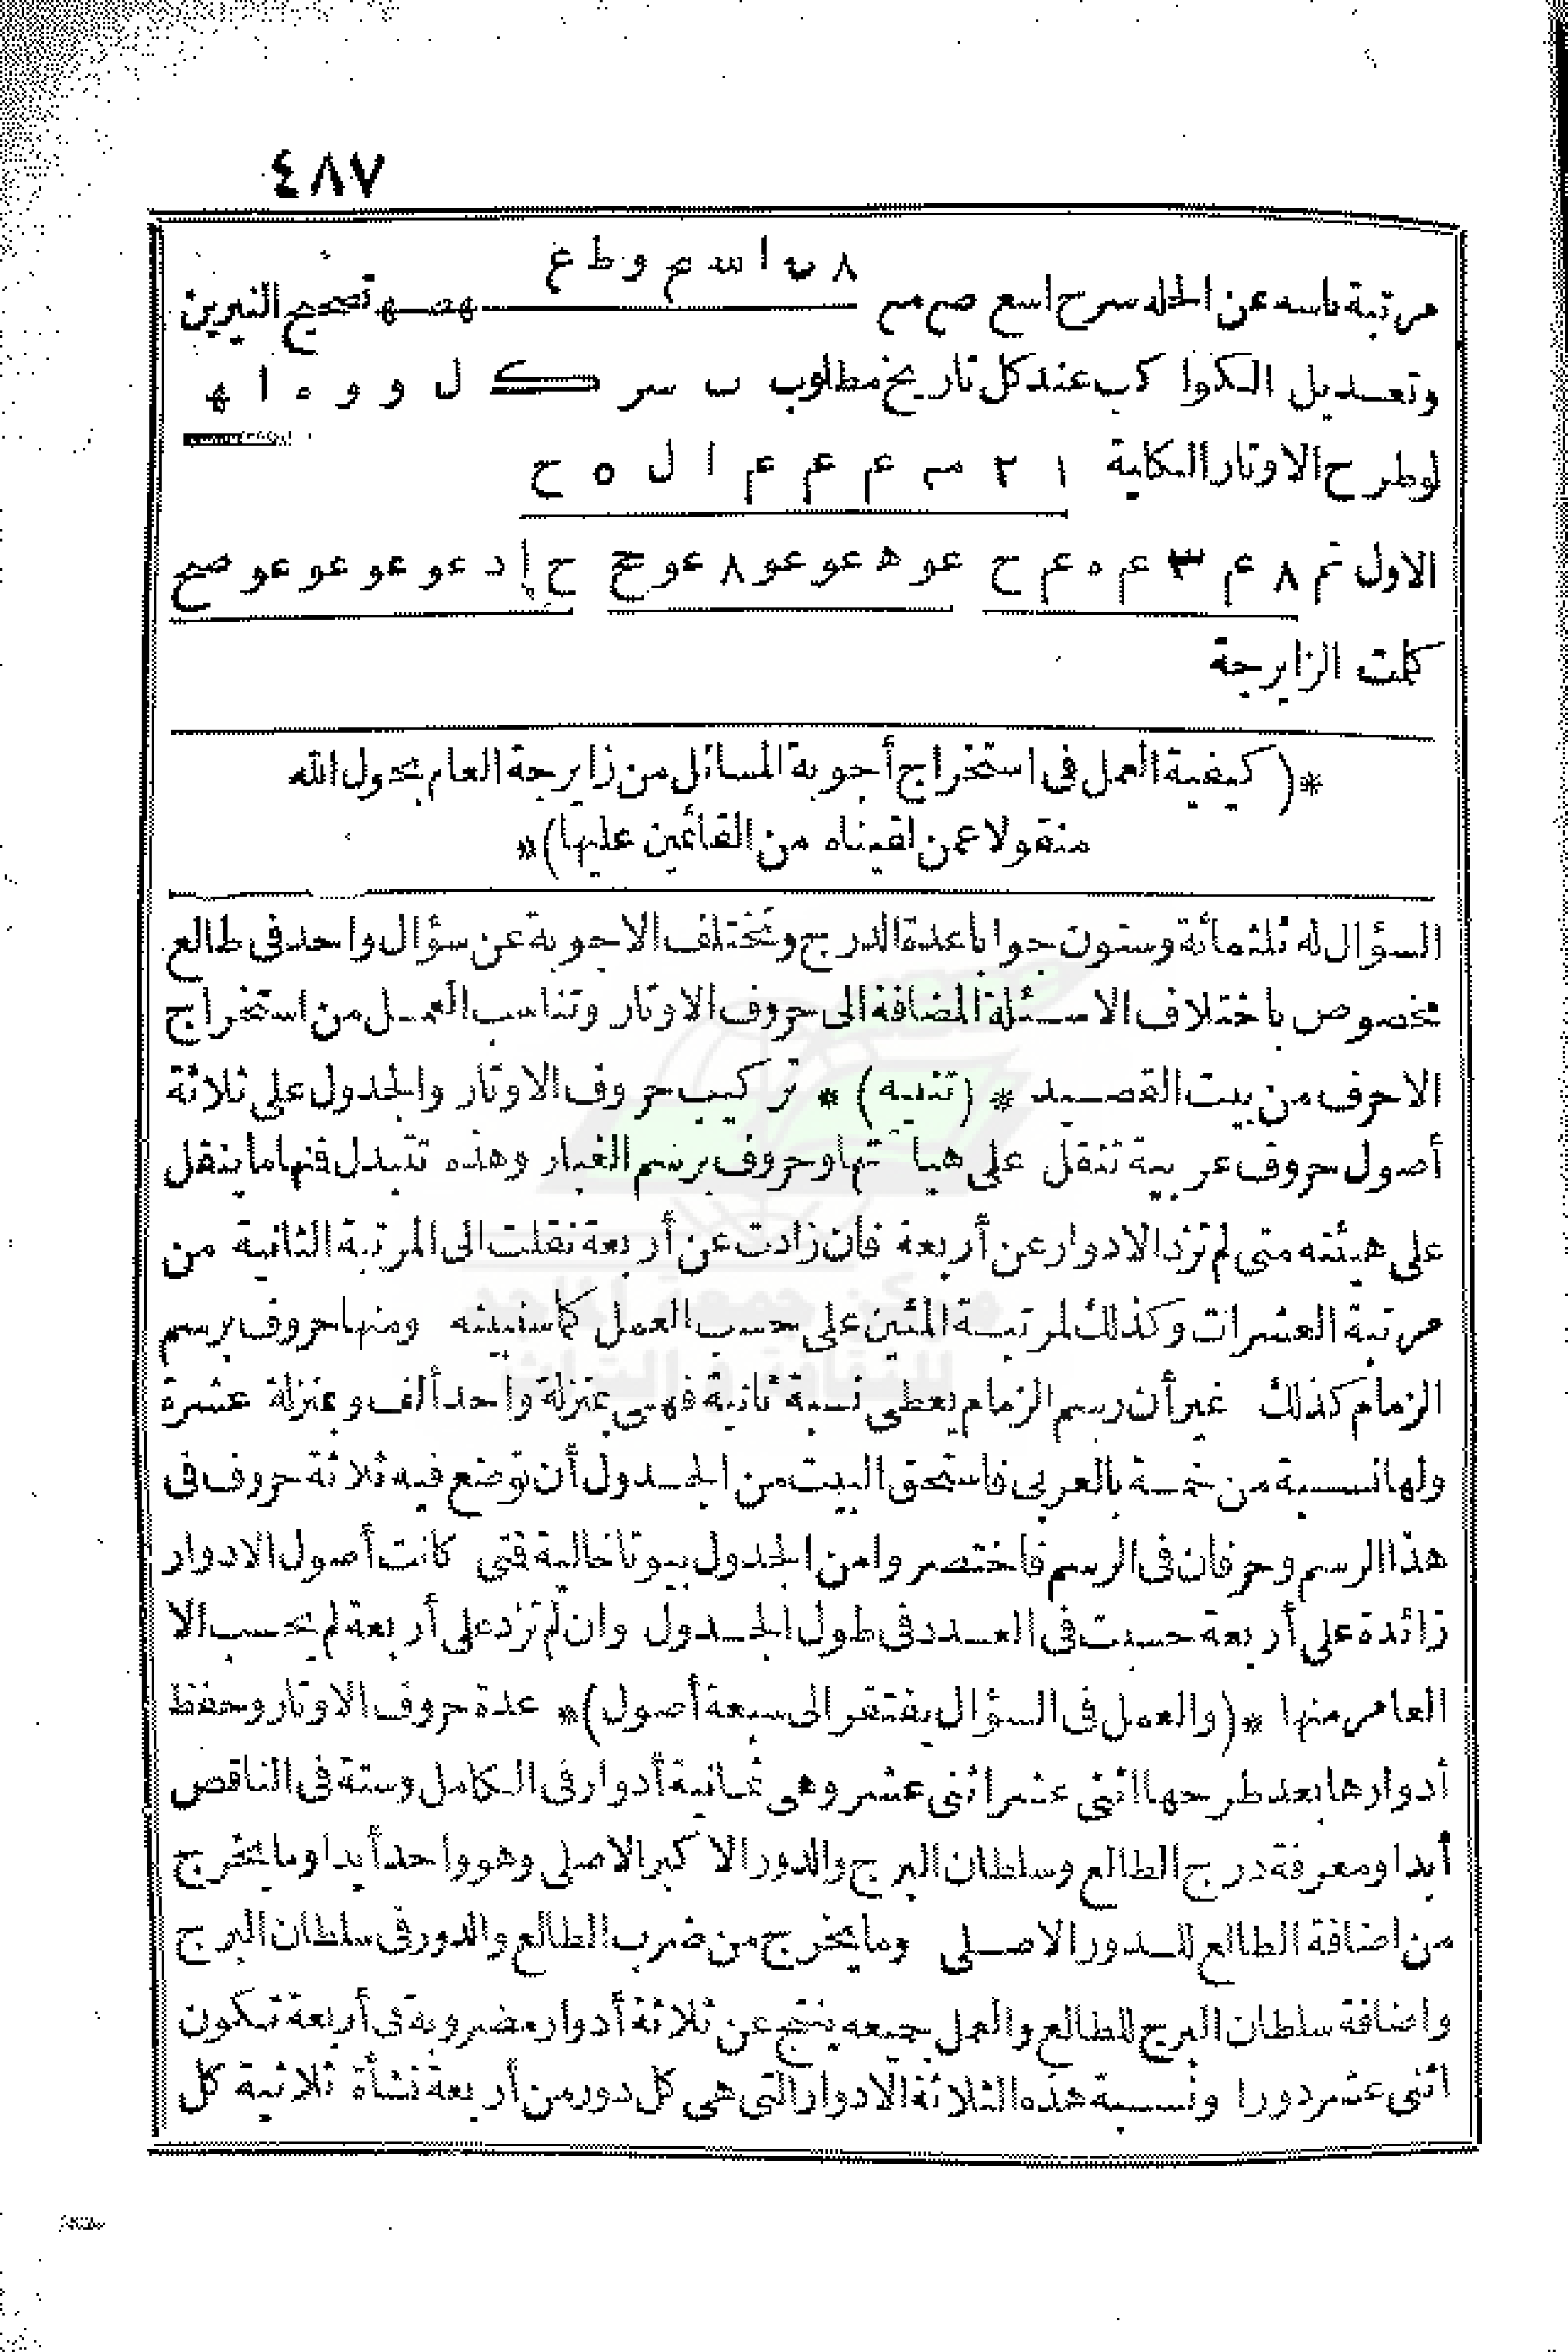 ٤٨٧
٨ ب ا س م و ط ع
مرتبة ناسه عن الحله سرح اسع صم تصحيح النيرين
وتعديل الكواكب عند كل تاريخ مطلوب ب سر ك ل و و ه ا
لوطرح الاوتار الكلية ١ ٢ م ع ع ع ا ل ٥ ح
الاول تم ٨ م ٣ م ه م ح عو ه عو عو ٨ عو ح ا د عو عو عو عو صح
كملت الزايرجة
*(كيفية العمل فى استخراج أجوبة المسائل من زايرجة العام بحول الله
منقولا عمن لقيناه من القائمين عليها)*
السؤال له ثلثمائة وستون جوابا عدة الدرج وتختلف الاجوبة عن سؤال واحد فى طالع
مخصوص باختلاف الاسئلة المضافة الى حروف الاوتار وتناسب العمل من استخراج
الاحرف من بيت القصيد * (تنبيه) * تركيب حروف الاوتار والجدول على ثلاثة
أصول حروف عربية تنقل على هيا تتها وحروف برسم الغبار وهذه تتبدل فنها ما ينقل
على هيئته متى لم تزد الادوار عن أربعة فان زادت عن أربعة نقلت الى المرتبة الثانية من
مرتبة العشرات وكذلك لمرتبة المئين على حسب العمل كما سنبينه ومنها حروف برسم
الزمام كذلك غير أن رسم الزمام يعطى نسبة ثانية فهى بمنزلة واحد ألف وبمنزلة عشرة
ولها نسبة من خمسة بالعربى فاستحق البيت من الجدول أن توضع فيه ثلاثة حروف فى
هذا الرسم وحرفان فى الرسم فاختصروا من الجدول بيوتا خالية فتى كانت أصول الادوار
زائدة على أربعة حسبت فى العدد فى طول الجدول وان لم تزد على أربعة لم يحسب الا
العامر منها *(والعمل فى السؤال يفتقر الى سبعة أصول)* عدة حروف الاوتار وحفظ
أدوارها بعد طرحها اثنى عشر اثنى عشر وهى ثمانية أدوار فى الكامل وستة فى الناقص
أبدا ومعرفة درج الطالع وسلطان البرج والدور الاكبر الاصلى وهو واحد أبدا وما يخرج
من اضافة الطالع للدور الاصلى وما يخرج من ضرب الطالع والدور فى سلطان البرج
واضافة سلطان البرج للطالع والعمل جميعه ينتج عن ثلاثة أدوار مضروبة فى أربعة تكون
اثنى عشر دورا ونسبة هذه الثلاثة الادوار التى هى كل دور من أربعة نشأة ثلاثية كل
مركز جمعة الماجد
للثقافة والتراث